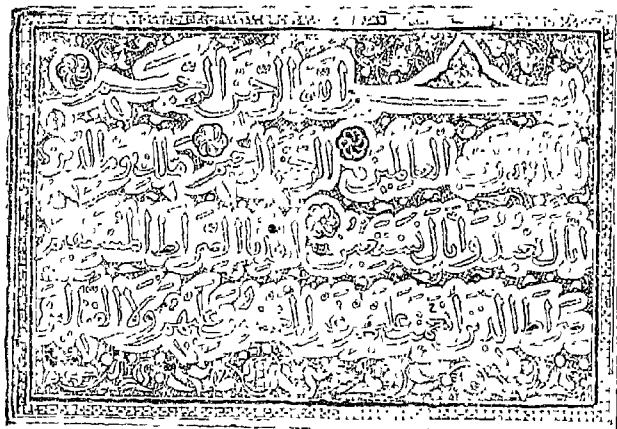 بسم الله الرحمن الرحيم
الحمد لله رب العالمين الرحمن الرحيم ملك يوم الدين
إياك نعبد وإياك نستعين اهدنا الصراط المستقيم
صراط الذين أنعمت عليهم غير المغضوب عليهم ولا الضالين